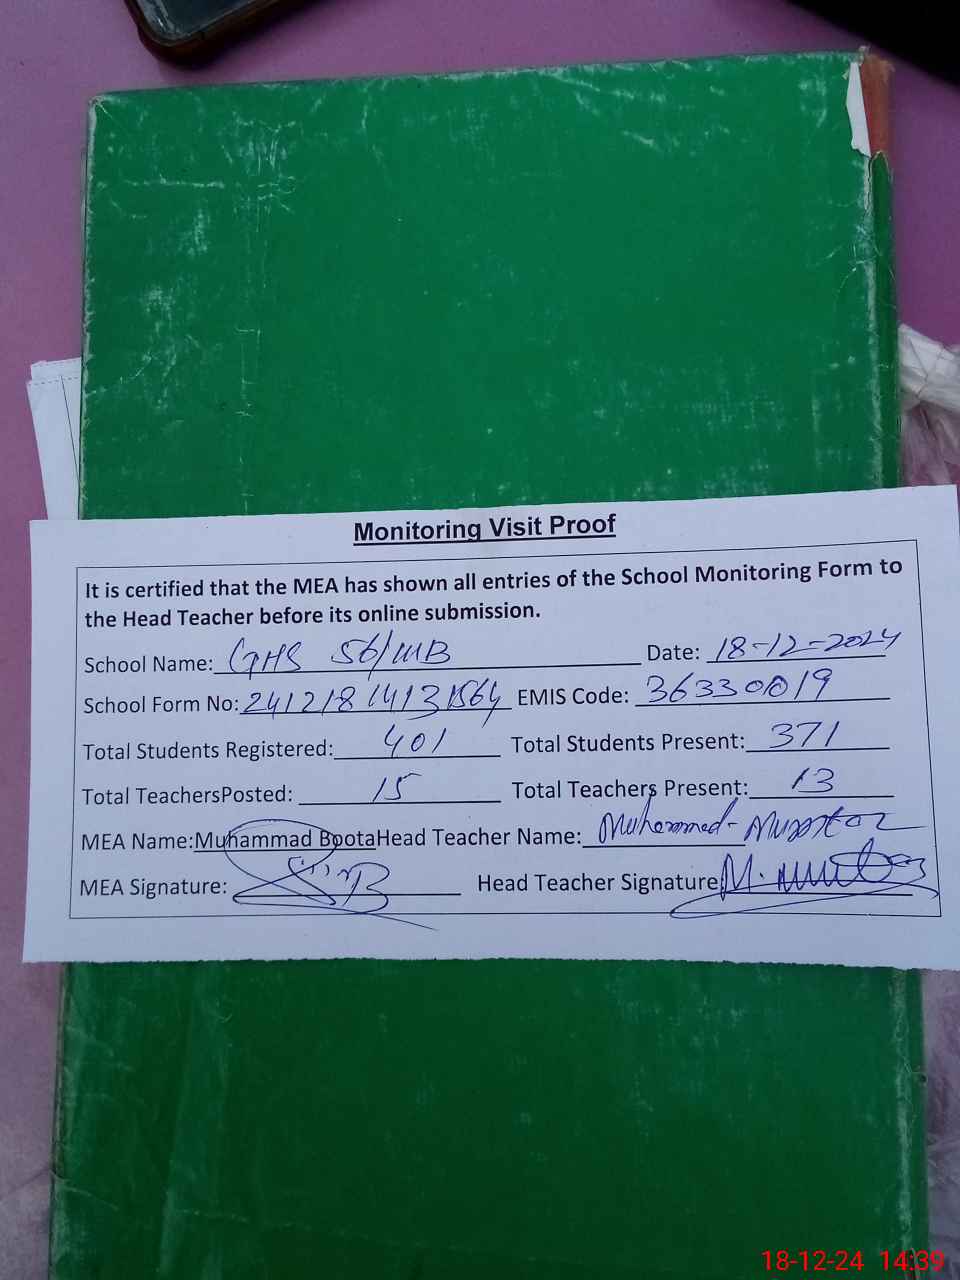 Monitoring Visit Proof
It is certified that the MEA has shown all entries of the School Monitoring Form to
the Head Teacher before its online submission.
School Name: GHS 56/MB Date: 18-12-2024
School Form No: EMIS Code: 36330019
Total Students Registered: 401 Total Students Present: 371
Total TeachersPosted: 15 Total Teachers Present: 13
MEA Name:Muhammad BootaHead Teacher Name: Muhammad
MEA Signature: Head Teacher Signature
18-12-24 14:39